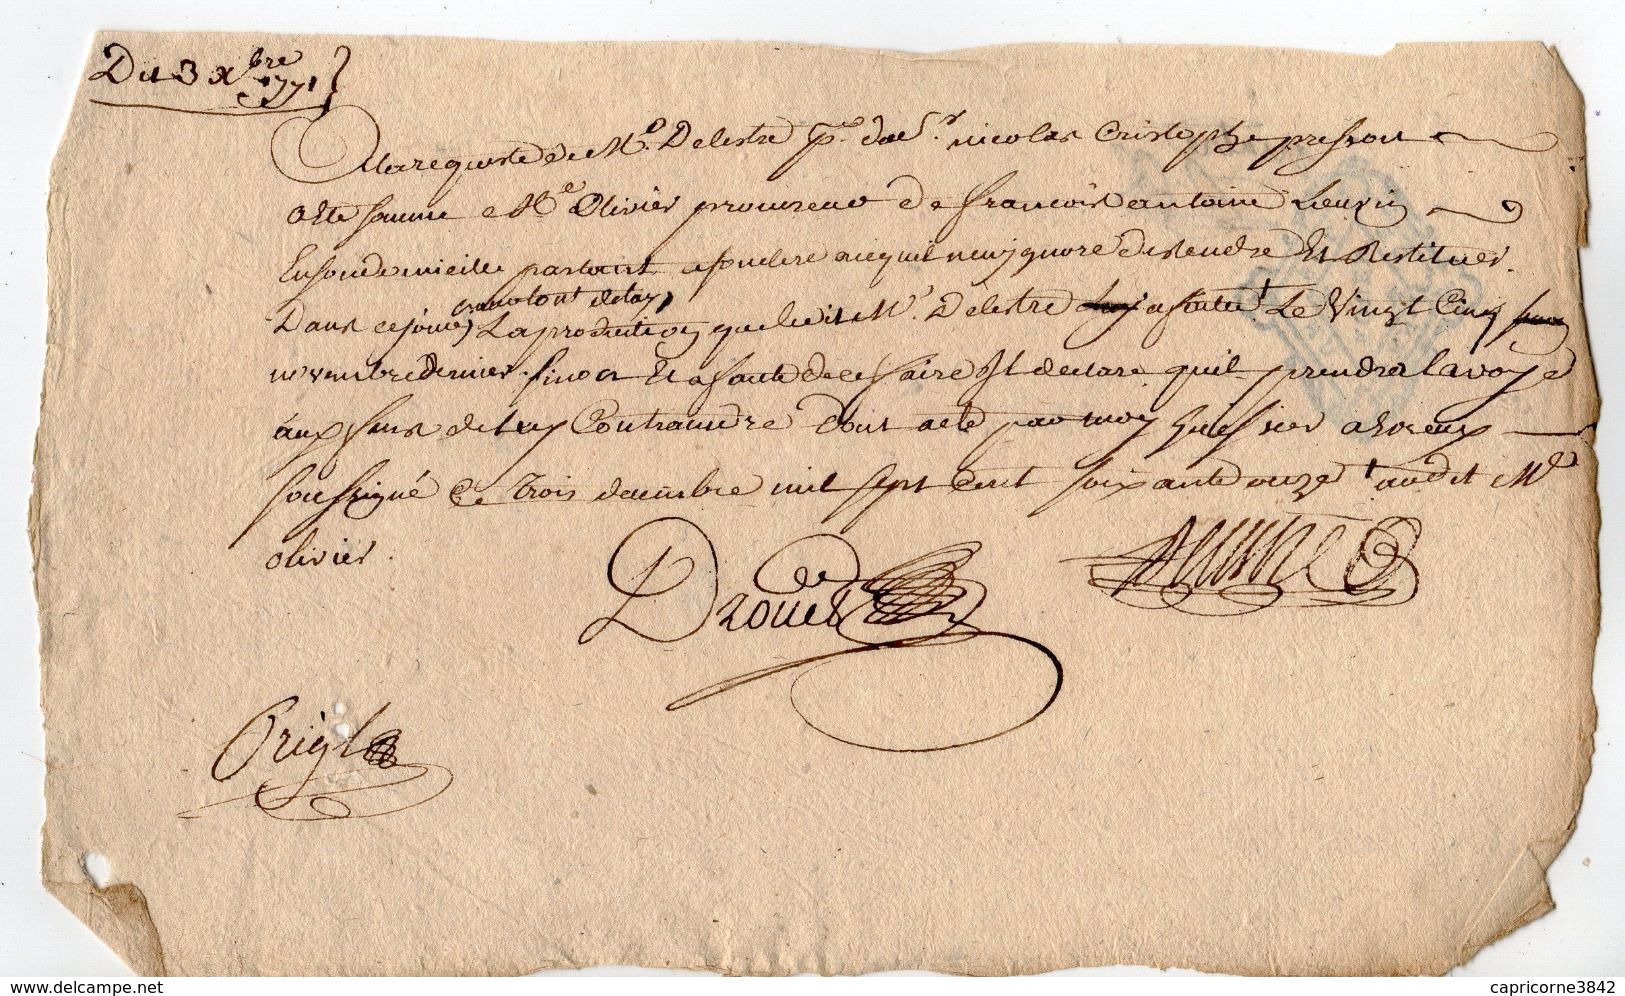 Du 3 Xbre
1771
A la requeste de Me. Delestre pr. du Sr. nicolas Cristophe presson
a ete somme Me Olivier procureur de francois antoine Lieuvin
En son domicille parlant a son clerc a ce quil n'en ignore de rendre Et Restituer
sans tout delay
Dans ce jour La production que ledit Me. Delestre luy a faitte Le Vingt Cinq
novembre dernier sinon Et a faute de ce faire Il declare quil prendra la voye
aux fins de luy Contraindre dont acte par moy huissier a
soussigné Ce Trois decembre mil sept Cent soixante onze audit Me
olivier.
Drouet
Origl
capricorne3842
www.delcampe.net